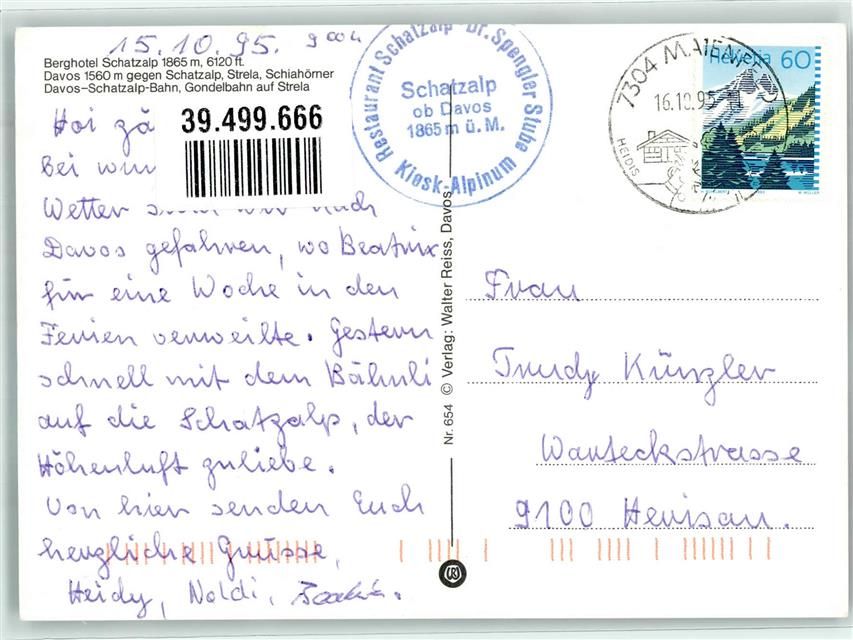 15.10.95.
Berghotel Schatzalp 1865 m, 6120 ft.
Davos 1560 m gegen Schatzalp, Strela, Schiahörner
Davos–Schatzalp-Bahn, Gondelbahn auf Strela
39.499.666
Hoi zä
Bei wun
Wetter sind wir nach
Davos gefahren, wo Beatrix
für eine Woche in den
Ferien verweilte. Gestern
schnell mit dem Bähnli
auf die Schatzalp, der
Höhenluft zuliebe.
Von hier senden Euch
herzliche Grüsse,
Heidy, Noldi,
Restaurant Schatzalp Dr. Spengler Stube
Schatzalp
ob Davos
1865 m ü. M.
Kiosk-Alpinum
Nr. 654 © Verlag: Walter Reiss, Davos
7304 MAIENFELD
16.10.95
HEIDIS
Helvetia 60
Frau
Trudy Künzler
Wanteckstrasse
9100 Herisau.